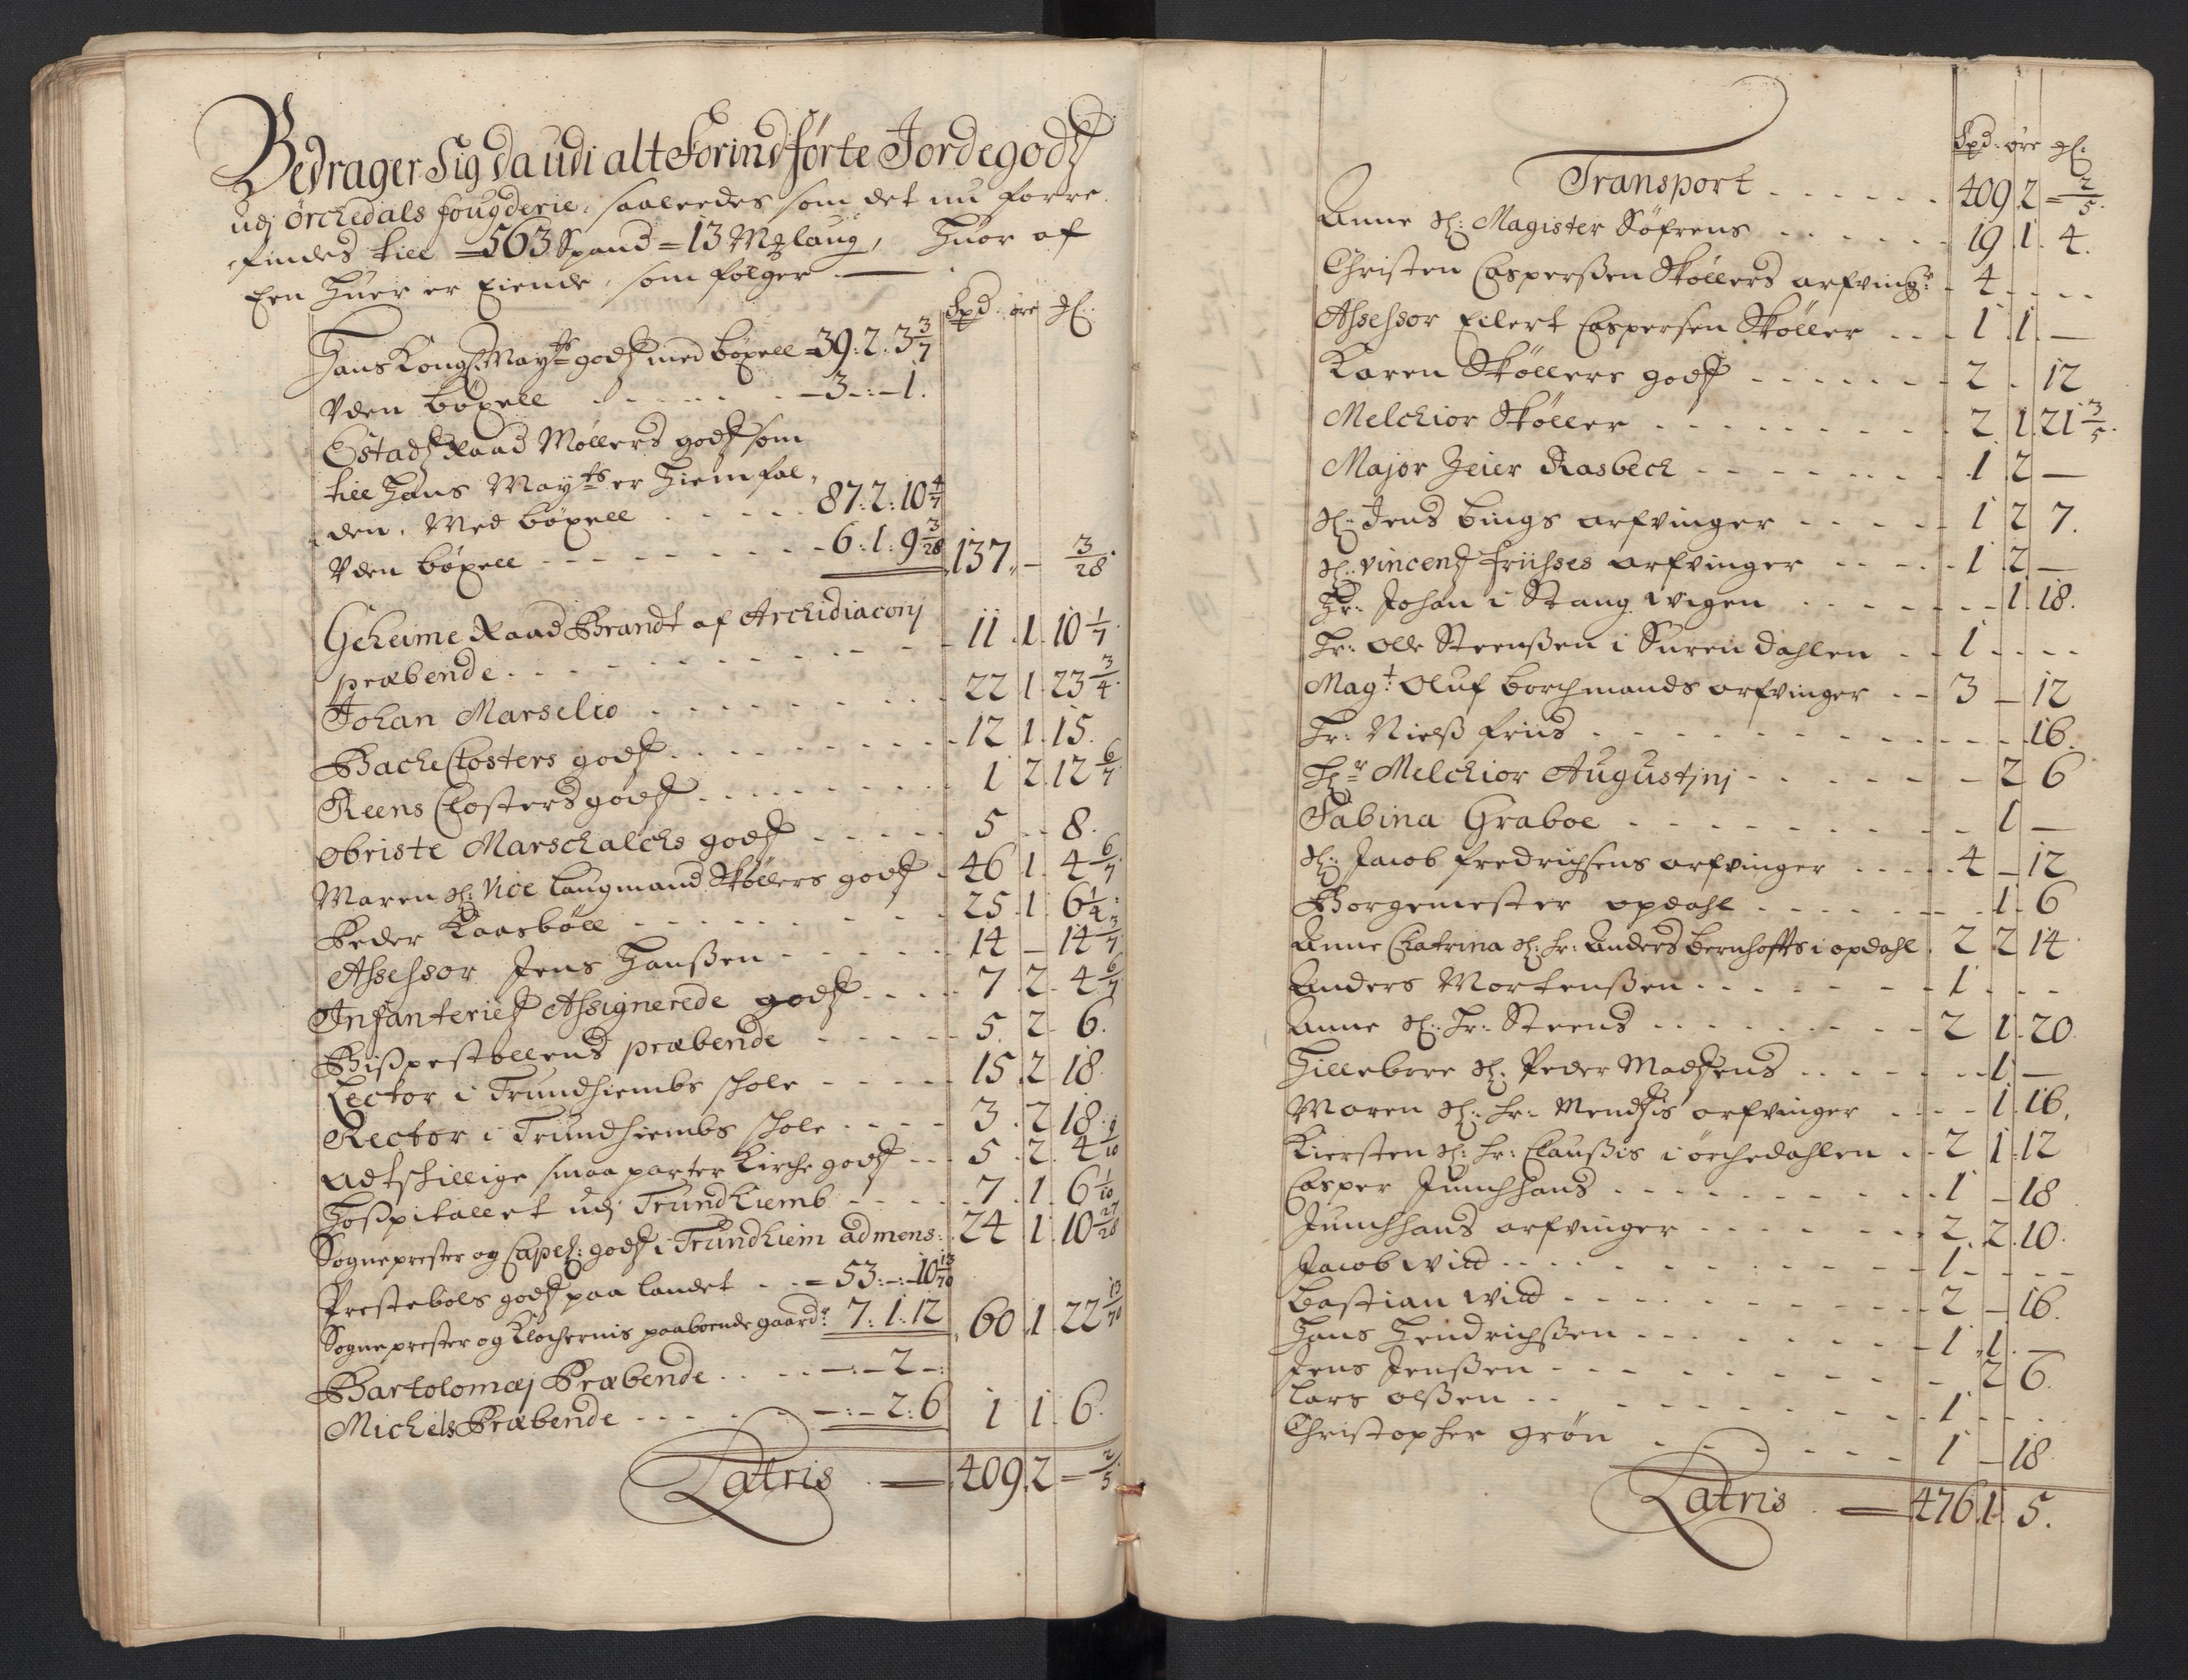 Bedrager Sig da udi alt Forindførte Jordegodz
udj Ørchedals fougderie, saaledes som det nu forre
findes till = 563 Spand = 13 Mrlaug, Huor af
Een Huer er Eiende, som følger —
Spd: øre Ml:
Hans Kongl: Mayts godz med böxell = 39:2:3 3/7
Uden böxell - - - 3-:-1.
Estadz Raad Möllers godz som
till Hans Mayts er Hiemfal,
den, Med böxell - - - 87:2:10 4/7
Uden böxell - - - 6:1:9 3/28 137 - 3/28
Geheime Raad Brandt af Archidiaconj
præbende - - - 11 1 10 1/7
Johan Marselio - - - 22 1 23 3/4
Bache Closters godz - - - 12 1 15.
Reens Closters godz - - - 1 2 12 6/7
Obriste Marschalchs godz - - - 5 - 8.
Maren Sl: Vice Laugmand Skøllers godz - 46 1 4 6/7
Peder Kaasböll - - - 25 1 6 1/4
Assessor Jens Hanßen - - - 14 - 14 3/7
Infanteriez Assignerede godz - - - 7 2 4 6/7
Bißpestollens præbende - - - 5 2 6.
Lector i Trundhiembs schole - - - 15 2 18
Rector i Trundhiembs schole - - - 3 2 18
Adtschillige smaa parter Kirche godz - - 5 2 4 1/10
Hospitallet udj Trundhiemb - - - 7 1 6 1/10
Sogneprester og Capel: godz i Trundhiem ad mens: 24 1 10 27/28
Prestebols godz paa landet - - = 53:-:10 13/70
Sogneprester og Klochernis paaboende gaardr 7:1:12 60 1 22 13/70
Bartolomæj Præbende - - - -:-2-:
Michels Præbende - - - -:-2:6 1 1 6
Latris — 409 2 = 2/5
Spd: øre Ml:
Transport - - - 409 2 = 2/5
Anne Sl: Magister Søfrens - - - 19 1 4.
Christen Casperßen Skøllers arfvingr - 4 - -
Assessor Eilert Caspersen Skøller - - 1 1 —
Karen Skøllers godz - - - 2 - 12
Melchior Skøller - - - 2 1 21 3/5
Major Jeier Rasbech - - - 1 2 —
Sl: Jens bings arfvinger - - - 1 2 7.
Sl: Vincenz friisses arfvinger - - - 1 2 —
Hr: Johan i Stangwigen - - - 1 18.
Hr: Olle Steenßen i Surendahlen - - 1 - -
Magt Oluf borchmands arfvinger - - 3 - 12
Hr: Nielß friis - - - 16.
Hr Melchior Augustjnj - - - 2 6
Sabina Graboe - - - 1 —
Sl: Jacob fredrichsens arfvinger - - - 4 - 12
Borgemester opdahl - - - 1 6
Anne Chatrina Sl: hr: Anders bernhoffts i opdahl 2 2 14
Anders Mortenßen - - - 1 - -
Anne Sl: Hr: Steens - - - 2 1 20
Hilleborr Sl: Peder Madzens - - - 1 —
Maren Sl: hr: Mendzis arfvinger - - - 1 16.
Kiersten Sl: hr: Claußis i ørchedahlen - - 2 1 12
Casper Junchhans - - - 1 - 18
Junchhans arfvinger - - - 2 2 10.
Jacob Wild - - - 1 - -
Bastian Wild - - - 2 - 16.
Hans Hendrichßen - - - 1 1 —
Jens Jenßen - - - 2 6.
Lars olßen - - - 1 - -
Christopher grön - - - 1 - 18
Latris — 476 1 5.